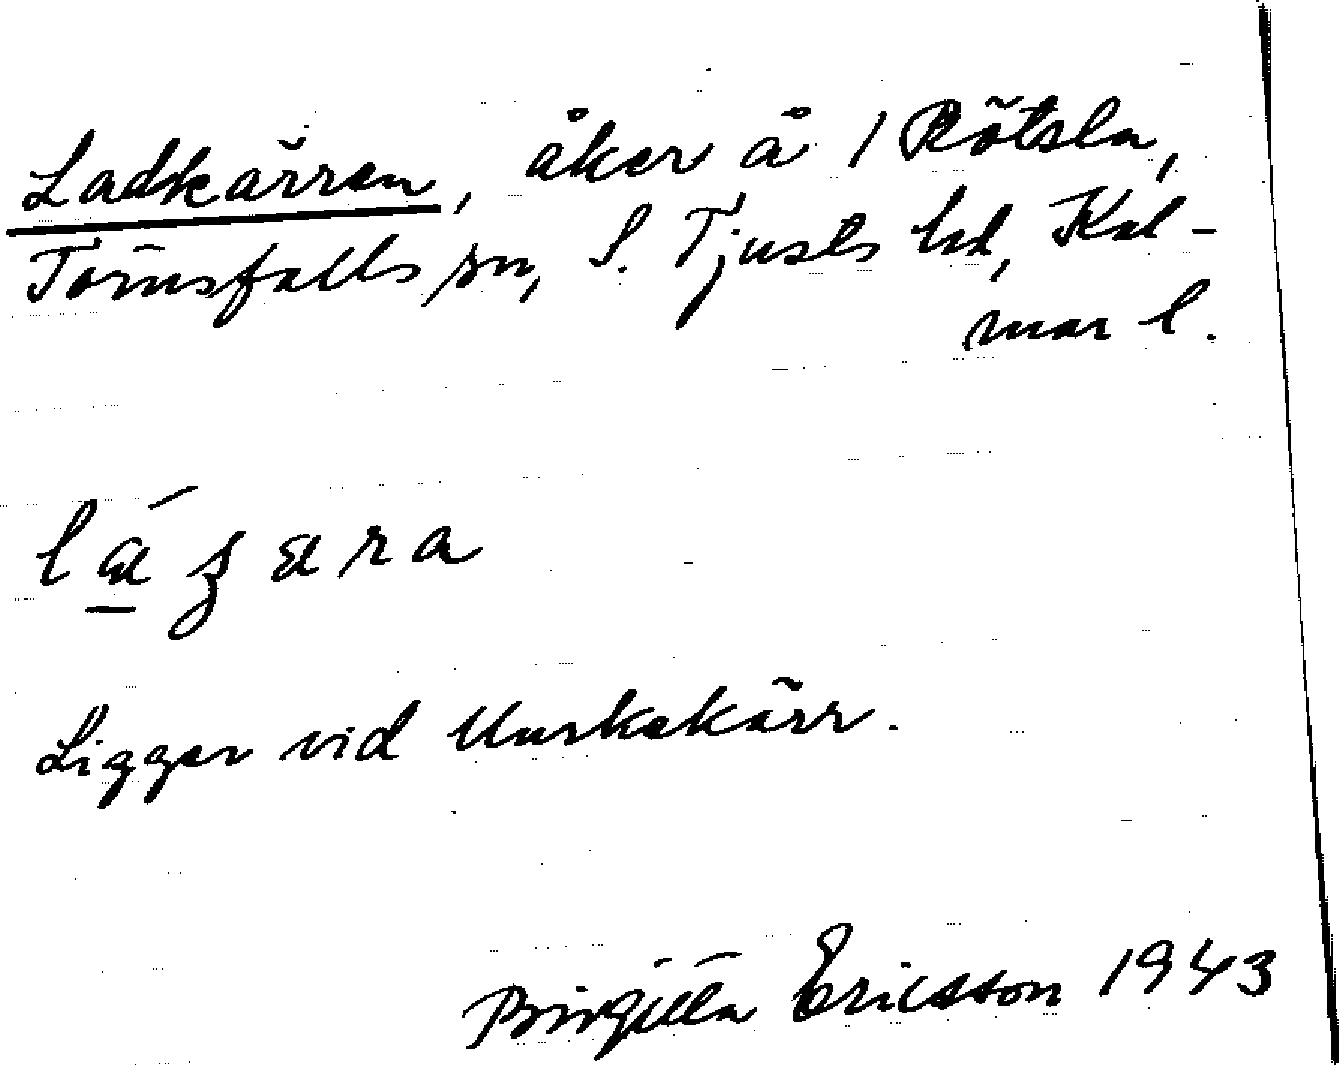 Ladkärren, åker å 1 Rötsla,
Törnsfalls sn, S. Tjusts hd, Kal-
mar l.
Ligger vid Kurkekärr.
Birgitta Ericsson 1943